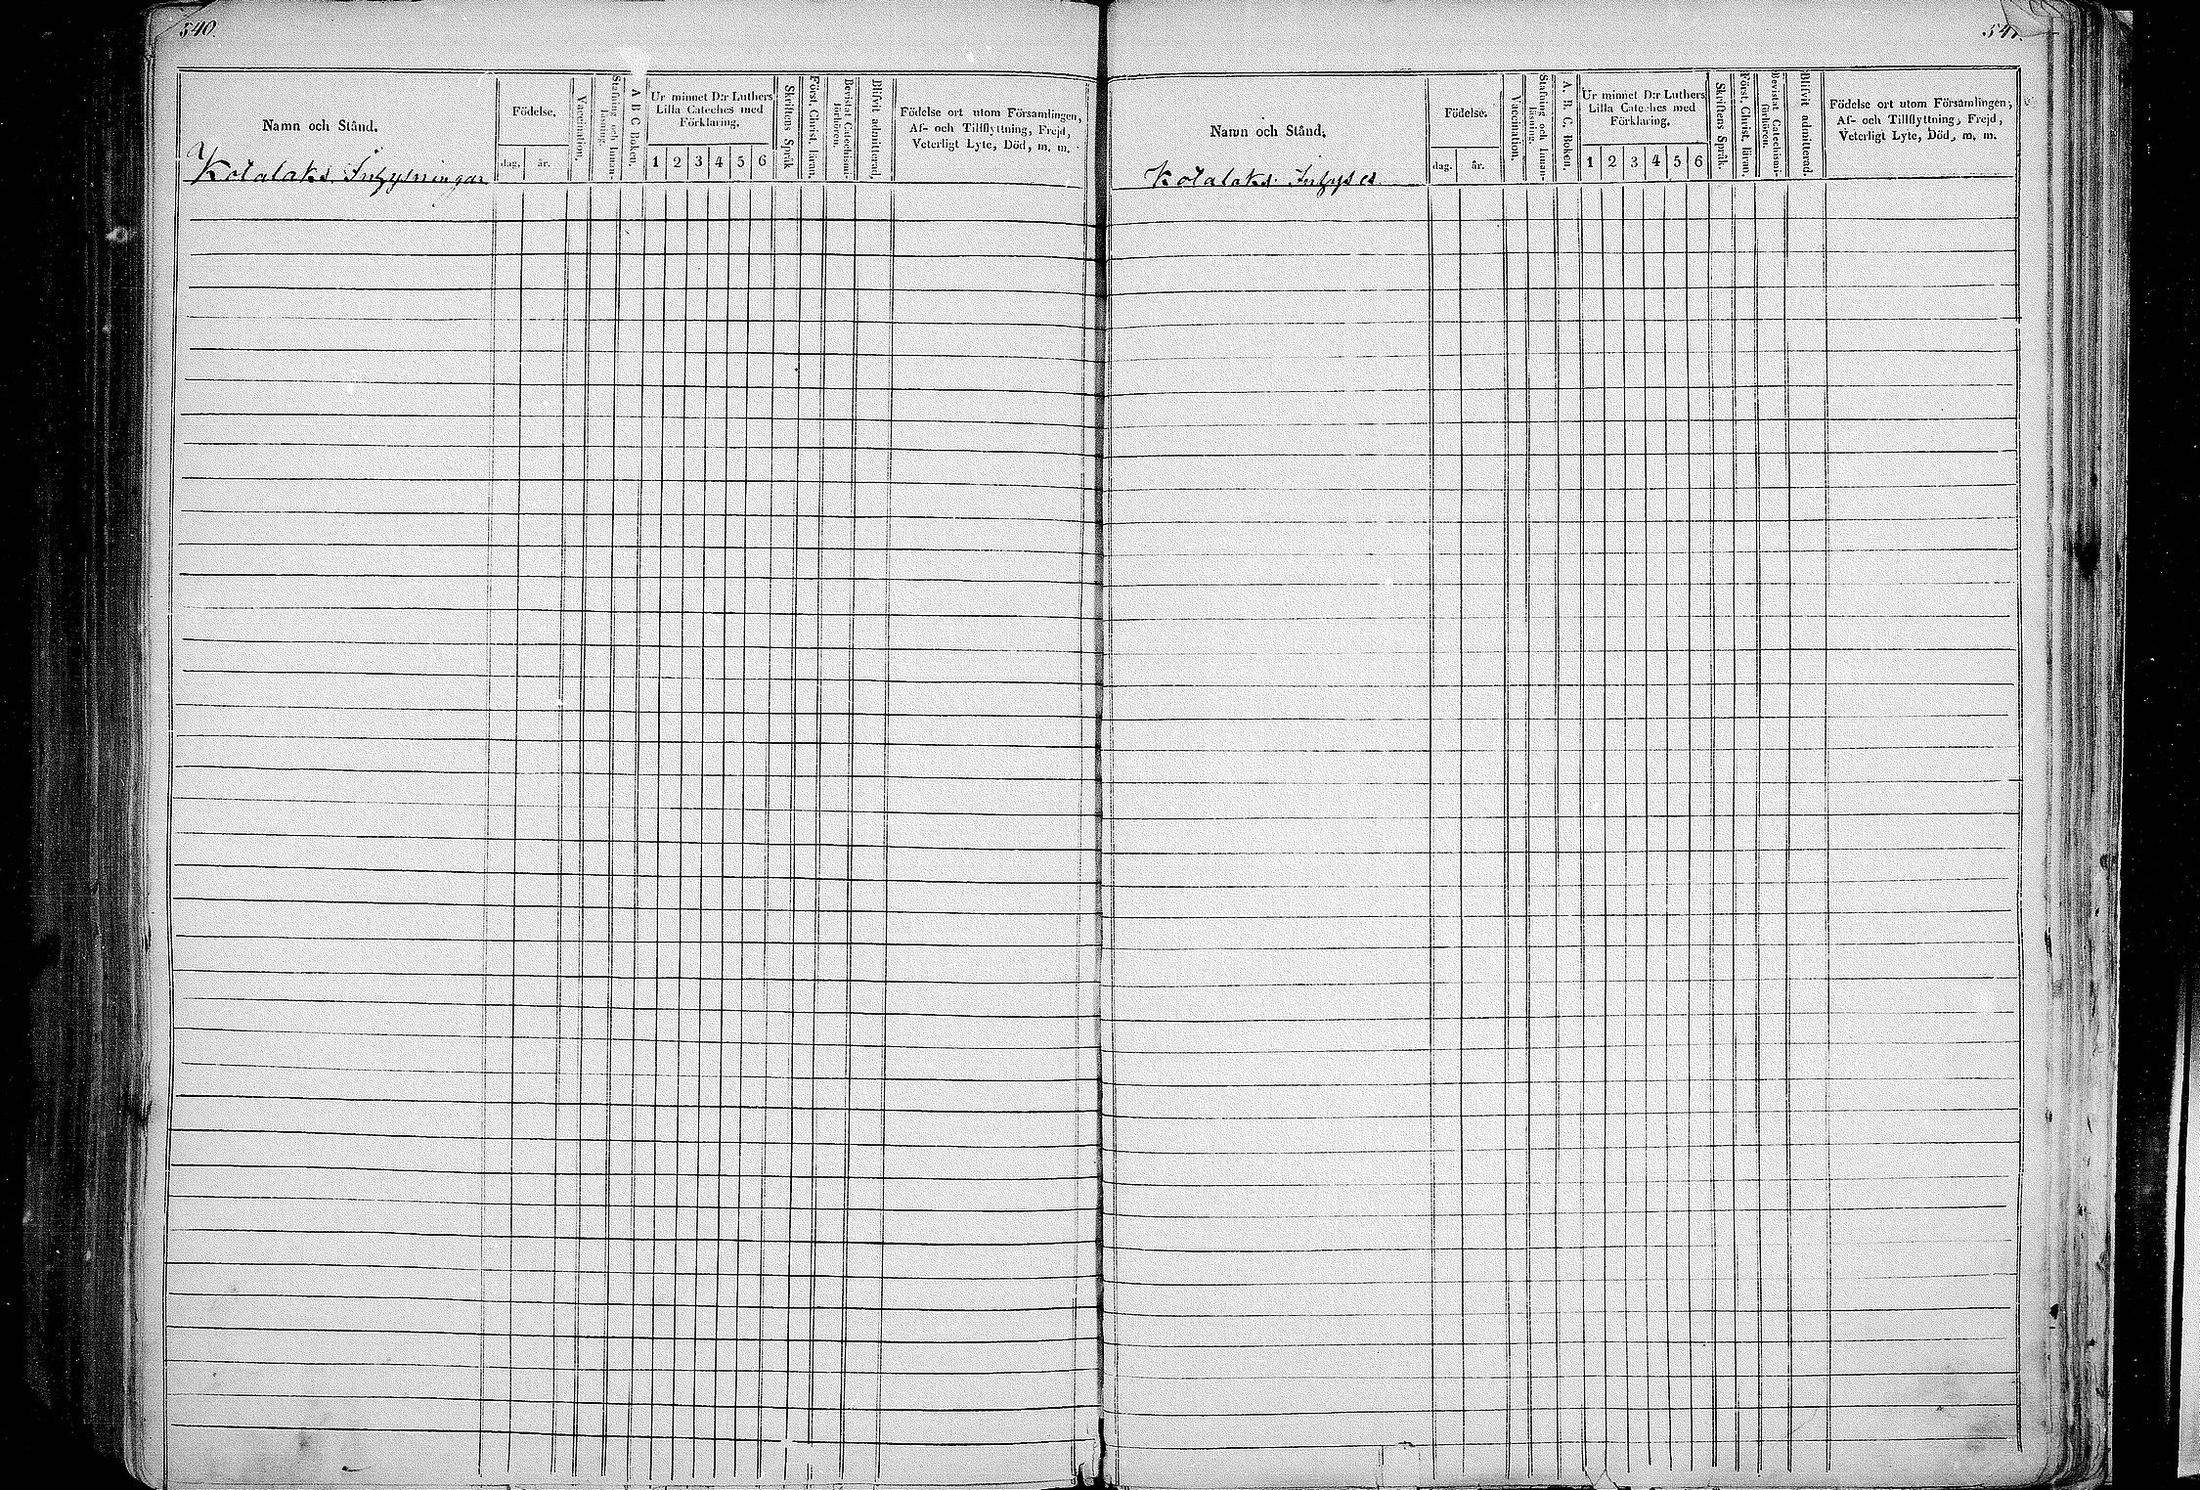 540.
Namn och Stånd.
Födelse.
dag.
år.
Vaccination.
Stafning och Innan-
läsning.
A B C Boken.
Ur minnet D:r Luthers
Lilla Cateches med
Förklaring.
1 2 3 4 5 6
Skriftens Språk
Först. Christ. läran.
Bevistat Catechismi-
förhören.
Blifvit admitterad.
Födelse ort utom Församlingen,
Af- och Tillflyttning, Frejd,
Veterligt Lyte, Död, m. m.
Kotalaks Inhysningar
541.
Namn och Stånd.
Födelse.
dag.
år.
Vaccination.
Stafning och Innan-
läsning.
A. B. C. Boken.
Ur minnet D:r Luthers
Lilla Cateches med
Förklaring.
1 2 3 4 5 6
Skriftens Språk.
Först. Christ. läran.
Bevistat Catechismi-
förhören.
Blifvit admitterad.
Födelse ort utom Församlingen,
Af- och Tillflyttning, Frejd,
Veterligt Lyte, Död, m. m.
Kotalaks